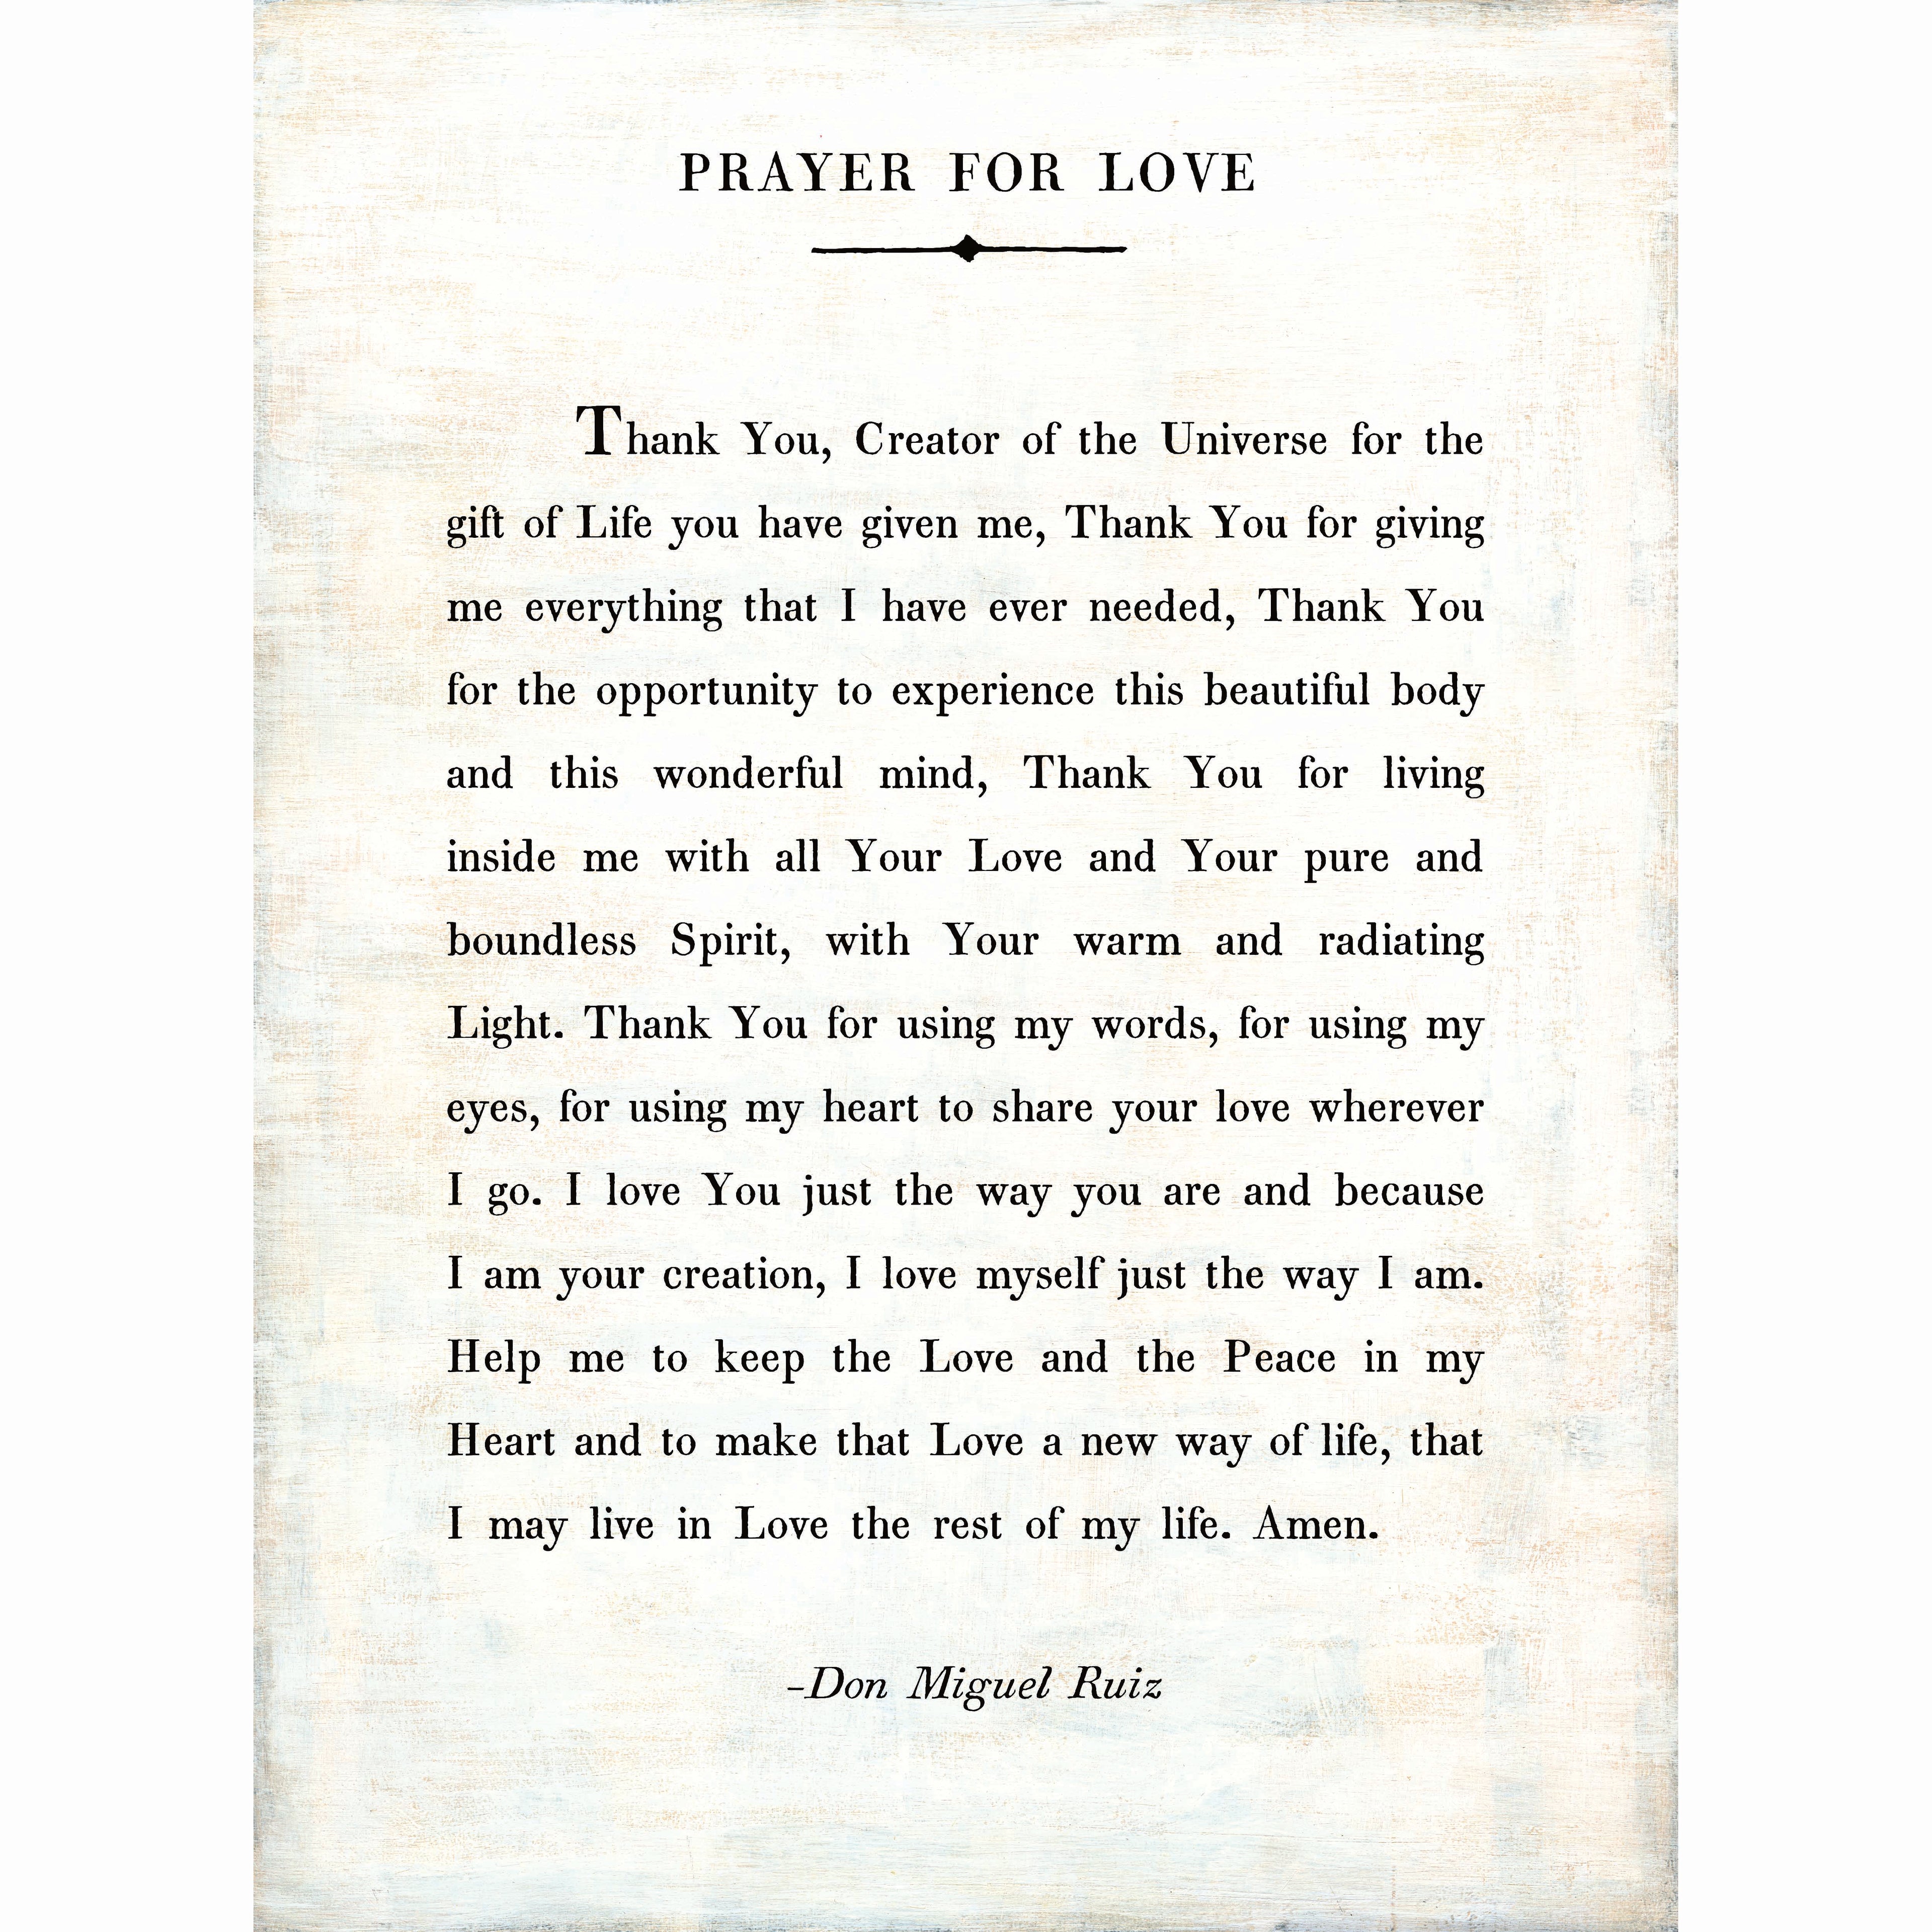 PRAYER FOR LOVE
Thank You, Creator of the Universe for the
gift of Life you have given me, Thank You for giving
me everything that I have ever needed, Thank You
for the opportunity to experience this beautiful body
and this wonderful mind, Thank You for living
inside me with all Your Love and Your pure and
boundless Spirit, with Your warm and radiating
Light. Thank You for using my words, for using my
eyes, for using my heart to share your love wherever
I go. I love You just the way you are and because
I am your creation, I love myself just the way I am.
Help me to keep the Love and the Peace in my
Heart and to make that Love a new way of life, that
I may live in Love the rest of my life. Amen.
–Don Miguel Ruiz